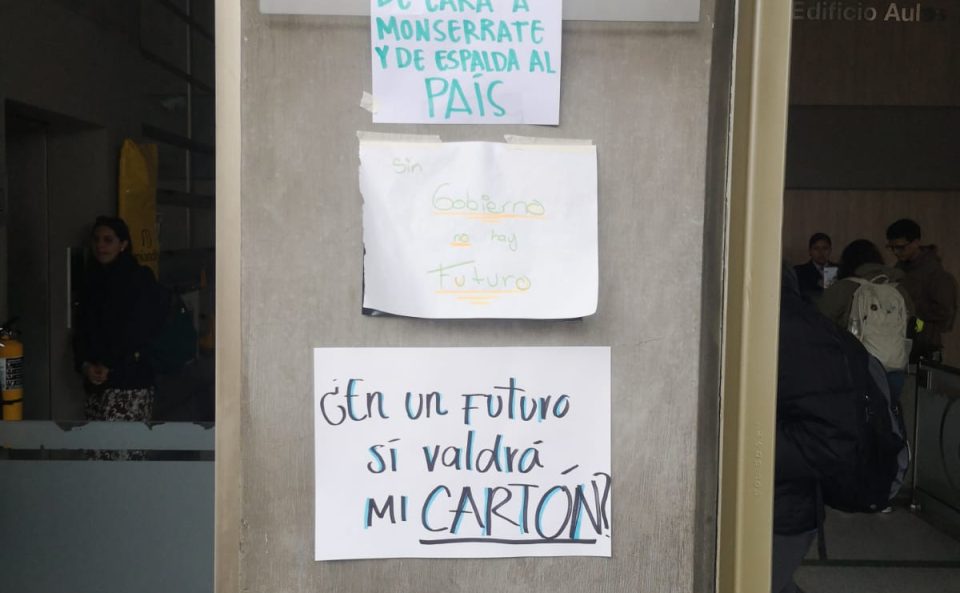 DE CARA A
MONSERRATE
Y DE ESPALDA AL
PAÍS
Sin
Gobierno
no hay
Futuro
¿En un Futuro
sí valdrá
MI CARTÓN?
Edificio Aulas